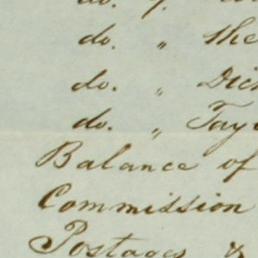 do. "
do. " the
do. " Dic
do. " Tay
Balance of
Commission
Postages &